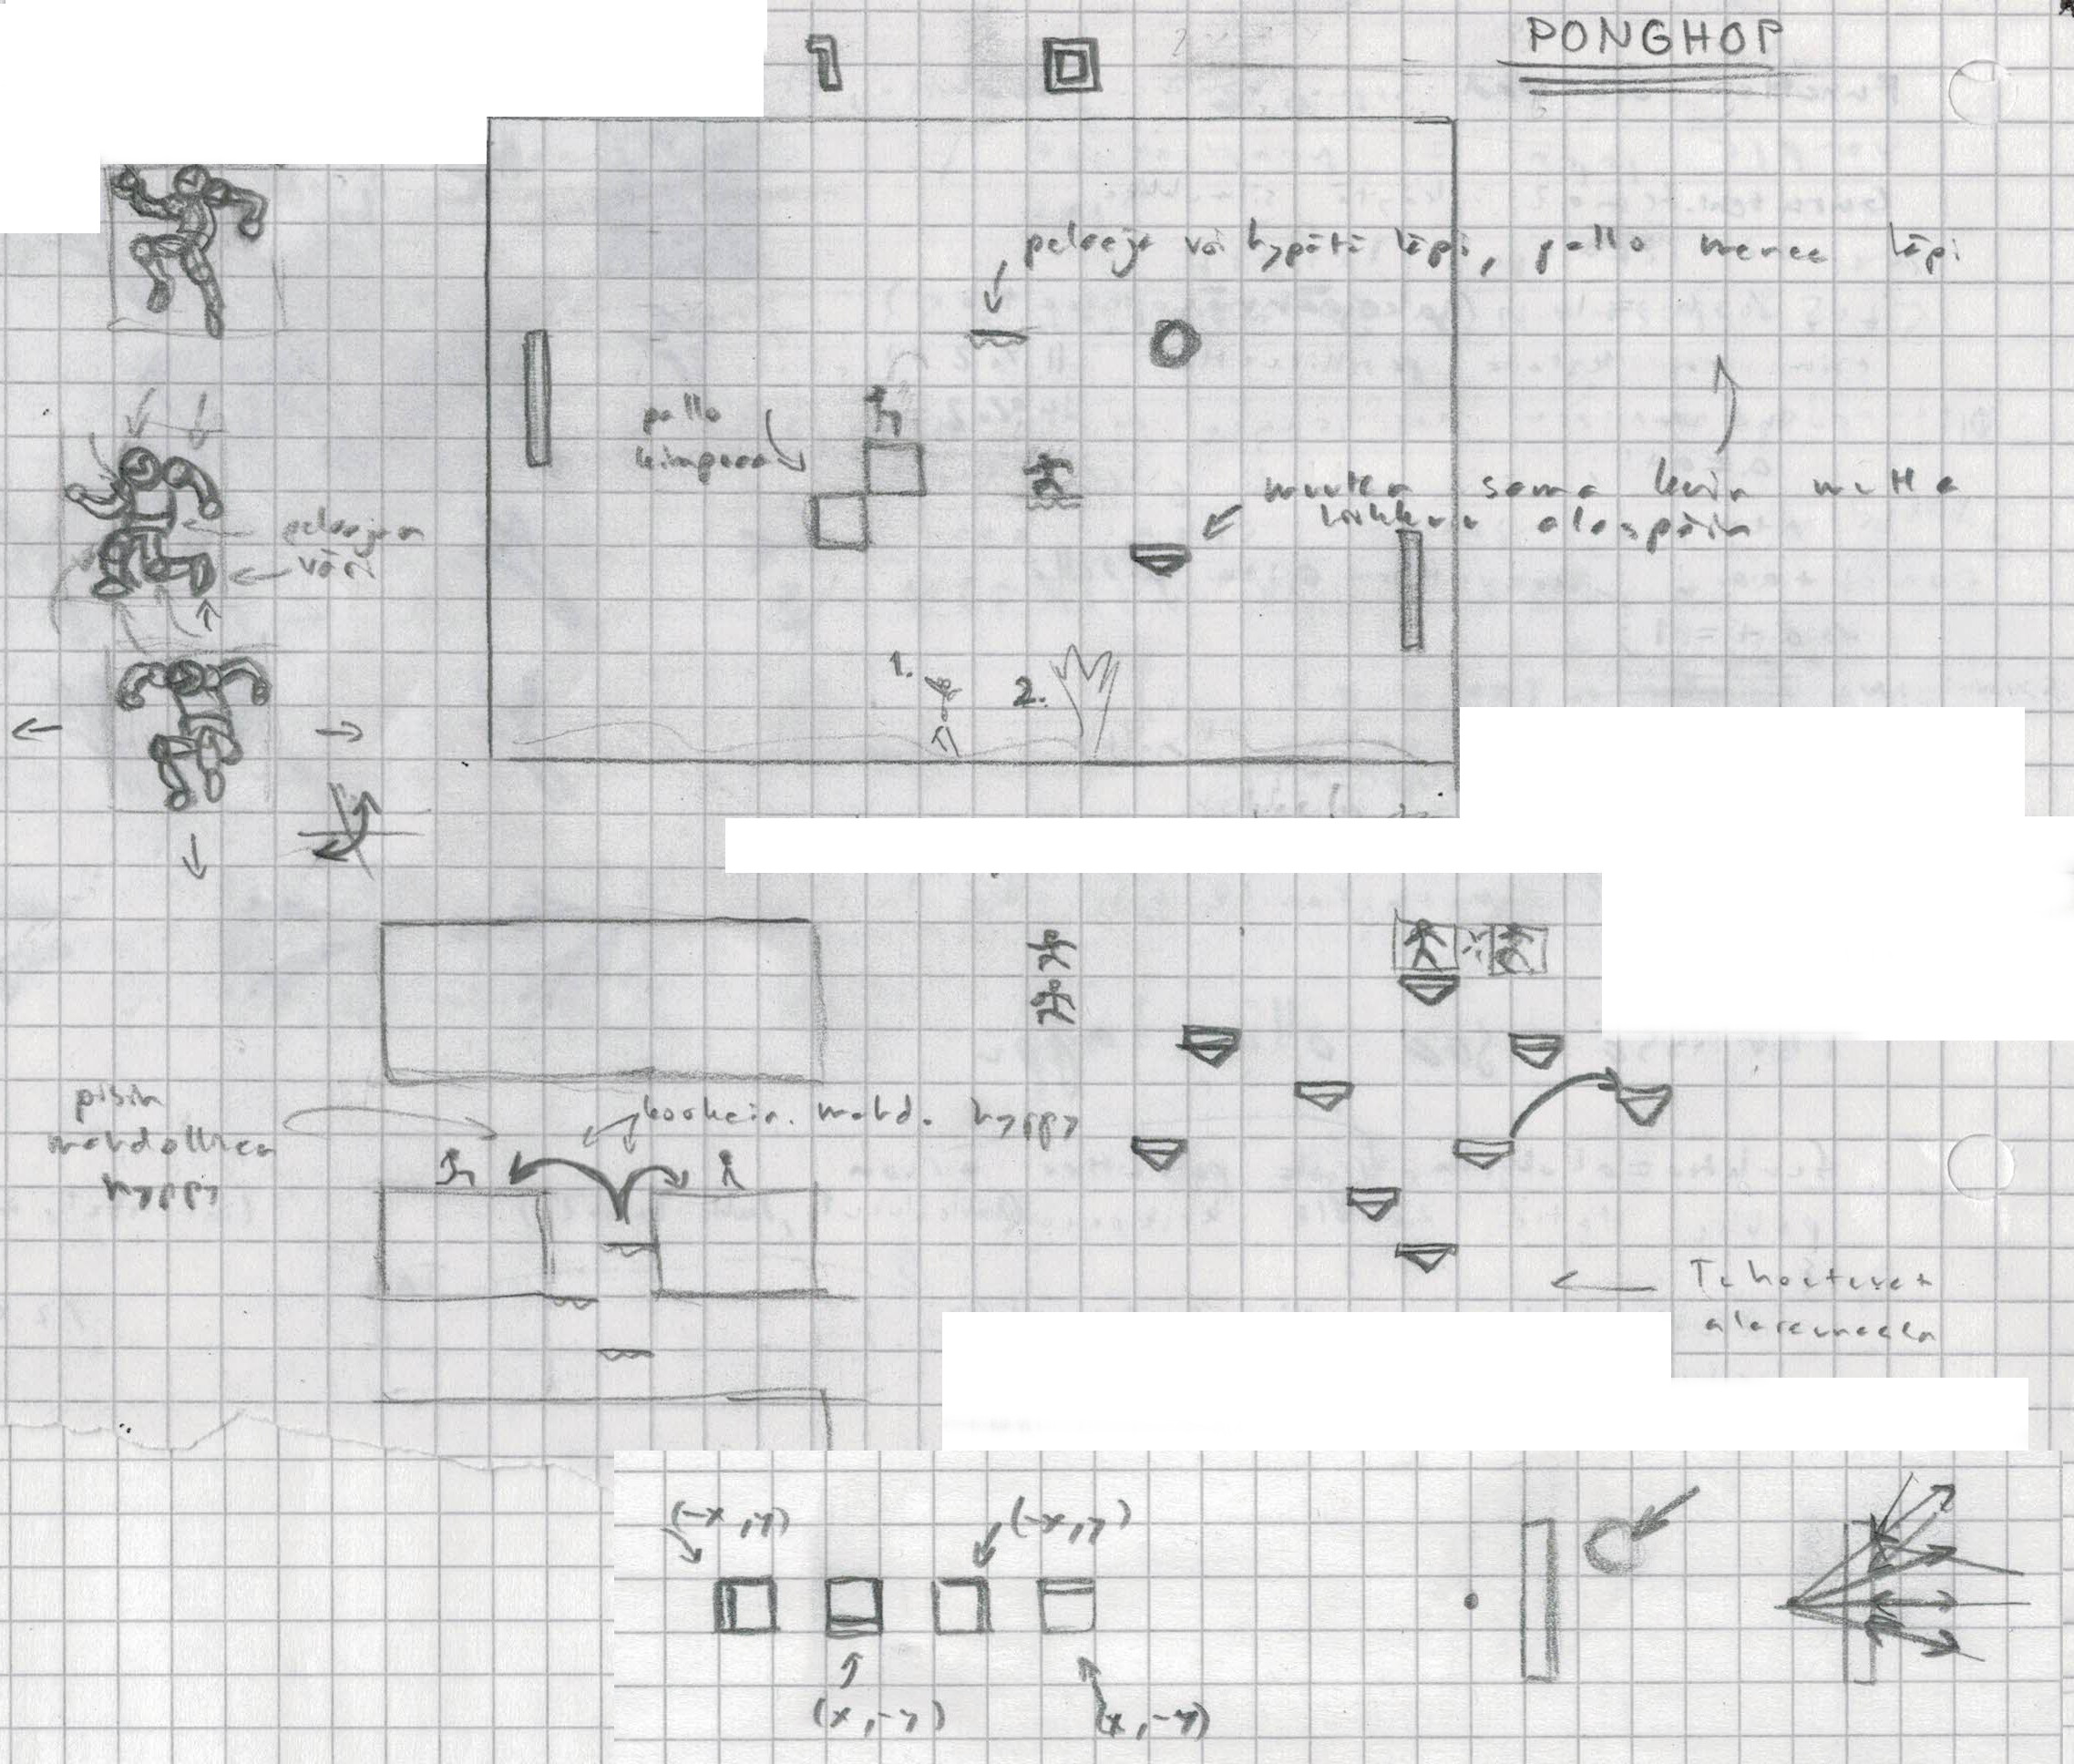 1 0
PONGHOP
pelaaja voi hypätä läpi, pallo menee läpi
pallo
kimpoaa
muuten sama kuin mutta
liikkuu alaspäin
pelaajan
väri
1.
2.
pisin
mahdollinen
hyppy
korkein. mahd. hyppy
Tuhoutuvat
alareunassa
(-x, y)
(-x, y)
(x, -y)
(x, -y)